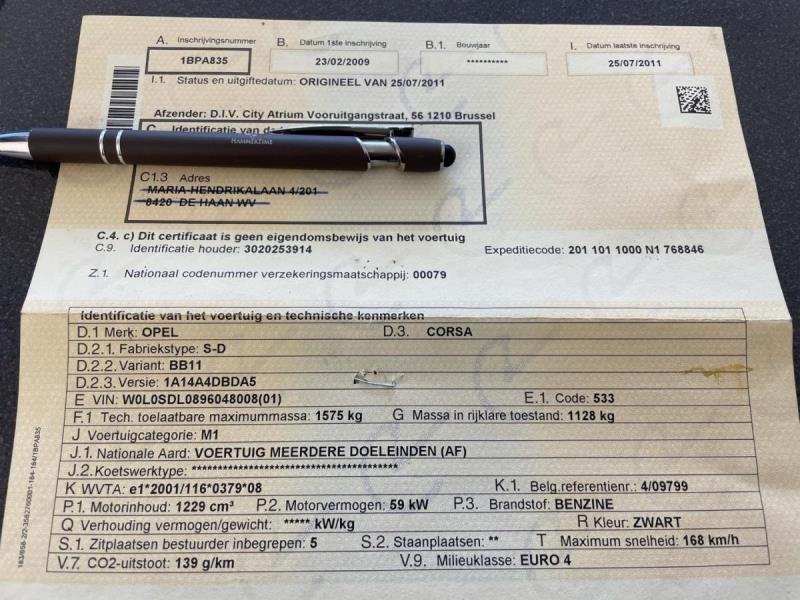 A. Inschrijvingsnummer B. Datum 1ste inschrijving B.1. Bouwjaar I. Datum laatste inschrijving
1BPA835 23/02/2009 ********** 25/07/2011
I.1. Status en uitgiftedatum: ORIGINEEL VAN 25/07/2011
Afzender: D.I.V. City Atrium Vooruitgangstraat, 56 1210 Brussel
C. Identificatie van de
HAMMERTIME
C1.3 Adres
MARIA-HENDRIKALAAN 4/201
8420 DE HAAN WV
C.4. c) Dit certificaat is geen eigendomsbewijs van het voertuig
C.9. Identificatie houder: 3020253914 Expeditiecode: 201 101 1000 N1 768846
Z.1. Nationaal codenummer verzekeringsmaatschappij: 00079
Identificatie van het voertuig en technische kenmerken
D.1 Merk: OPEL D.3. CORSA
D.2.1. Fabriekstype: S-D
D.2.2. Variant: BB11
D.2.3. Versie: 1A14A4DBDA5
E VIN: W0L0SDL0896048008(01) E.1. Code: 533
F.1 Tech. toelaatbare maximummassa: 1575 kg G Massa in rijklare toestand: 1128 kg
J Voertuigcategorie: M1
J.1. Nationale Aard: VOERTUIG MEERDERE DOELEINDEN (AF)
J.2. Koetswerktype: **************************************
K WVTA: e1*2001/116*0379*08 K.1. Belg.referentienr.: 4/09799
P.1. Motorinhoud: 1229 cm³ P.2. Motorvermogen: 59 kW P.3. Brandstof: BENZINE
Q Verhouding vermogen/gewicht: ***** kW/kg R Kleur: ZWART
S.1. Zitplaatsen bestuurder inbegrepen: 5 S.2. Staanplaatsen: ** T Maximum snelheid: 168 km/h
V.7. CO2-uitstoot: 139 g/km V.9. Milieuklasse: EURO 4